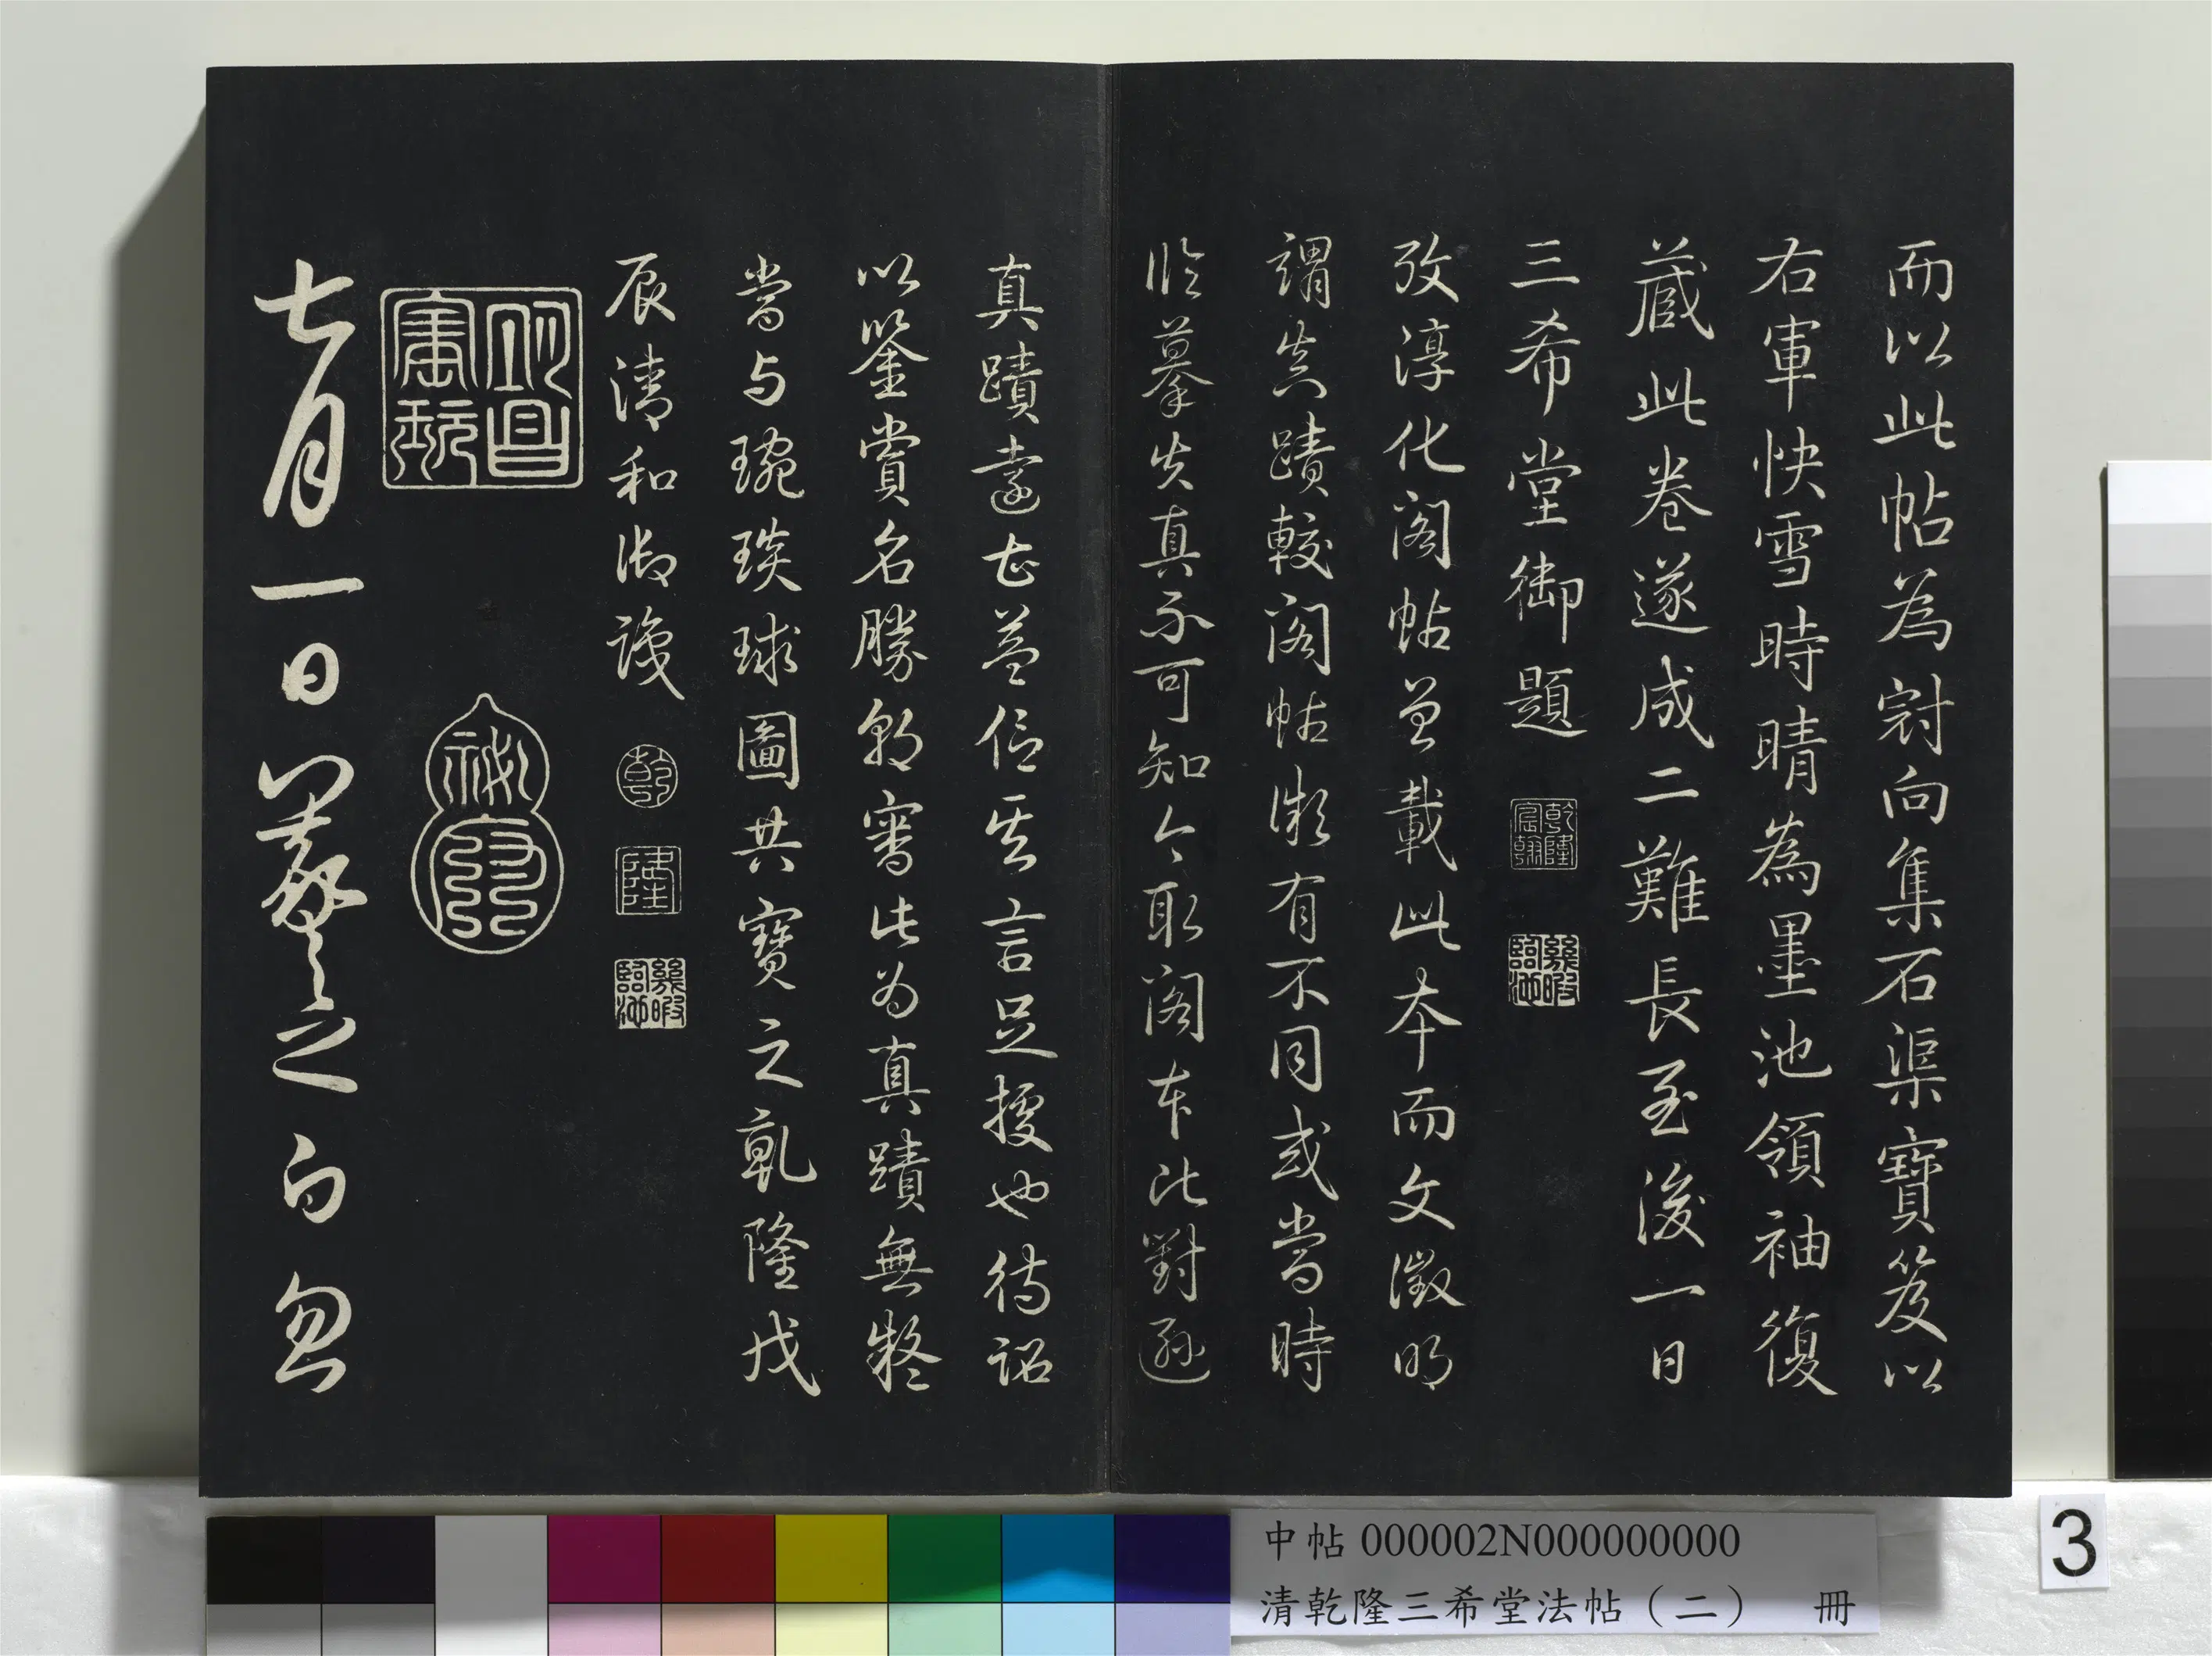 而以此帖為冠向集石渠寶笈以
右軍快雪時晴為墨池領袖復
藏此卷遂成二難長至後一日
三希堂御題
乾隆宸翰
幾暇臨池
攷淳化閣帖曾載此本而文徵明
謂真蹟較閣帖微有不同或當時
臨摹失真不可知今取閣本比對遜
真蹟遠甚益信其言足據也待詔
以鑒賞名勝朝審此為真蹟無疑
當与琬琰球圖共寶之乾隆戊
辰清和御識
乾
隆
幾暇臨池
明昌寶玩
七月一日羲之白忽
中帖 000002N000000000
清乾隆三希堂法帖（二） 冊
3